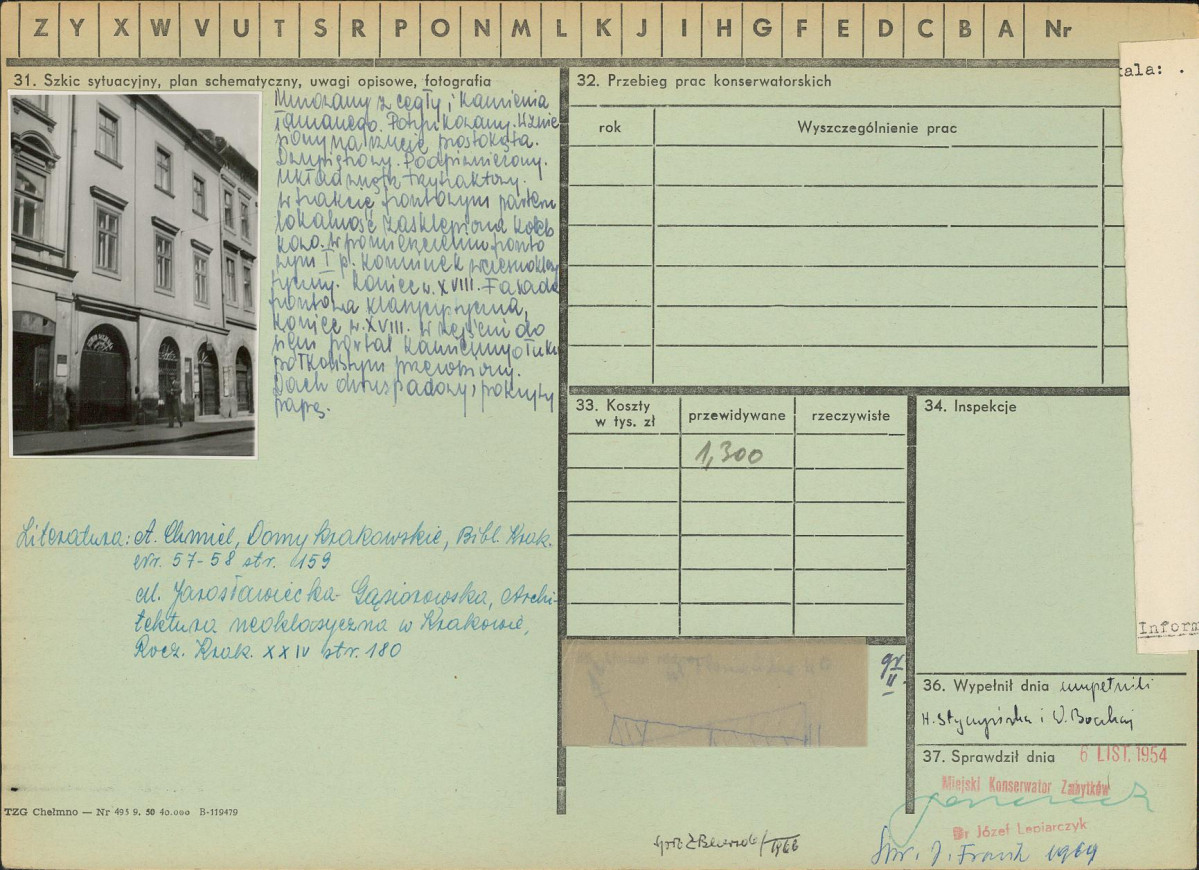 Z Y X W V U T S R P O N M L K J I H G F E D C B A Nr
31. Szkic sytuacyjny, plan schematyczny, uwagi opisowe, fotografia
Murowany z cegły i kamienia
łamanego. Potynkowany. Wznie
siony na rzucie prostokąta.
Dwupiętrowy. Podpiwniczony.
Układ wnętrz trzytraktowy.
W trakcie frontowym parteru
lokalność zasklepiona koleb
kowo. W pomieszczeniu fronto
wym I p. kominek wczesnoklasy
tyczny. Koniec w. XVIII. Fasada
frontowa klasycystyczna,
koniec w. XVIII. W wejściu do
sieni portal kamienny o łuku
półkolistym przewiązany.
Dach dwuspadowy, pokryty
papą.
Literatura: A. Chmiel, Domy krakowskie, Bibl. Krak.
Nr. 57-58 str. 159
M. Jarosławiecka-Gąsiorowska, Archi-
tektura neoklasyczna w Krakowie,
Rocz. Krak. XXIV str. 180
TZG Chełmno — Nr 495 9. 50 40.000 B-119479
32. Przebieg prac konserwatorskich
rok Wyszczególnienie prac
33. Koszty
w tys. zł
przewidywane rzeczywiste
1,300
34. Inspekcje
kala: .
Inform
36. Wypełnił dnia wypełnili
H. Styczyńska i W. Bockaj
37. Sprawdził dnia 6 LIST. 1954
Miejski Konserwator Zabytków
Dr Józef Lepiarczyk
Spr. J. Frank 1969
1966